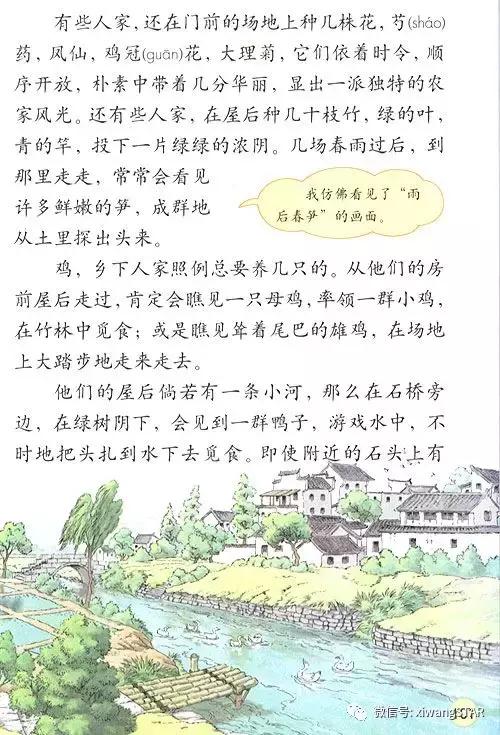 有些人家，还在门前的场地上种几株花，芍(sháo)
药，凤仙，鸡冠(guān)花，大理菊，它们依着时令，顺
序开放，朴素中带着几分华丽，显出一派独特的农
家风光。还有些人家，在屋后种几十枝竹，绿的叶，
青的竿，投下一片绿绿的浓阴。几场春雨过后，到
那里走走，常常会看见
许多鲜嫩的笋，成群地
从土里探出头来。
我仿佛看见了“雨
后春笋”的画面。
鸡，乡下人家照例总要养几只的。从他们的房
前屋后走过，肯定会瞧见一只母鸡，率领一群小鸡，
在竹林中觅食；或是瞧见耸着尾巴的雄鸡，在场地
上大踏步地走来走去。
他们的屋后倘若有一条小河，那么在石桥旁
边，在绿树阴下，会见到一群鸭子，游戏水中，不
时地把头扎到水下去觅食。即使附近的石头上有
微信号: xiwangSTAR